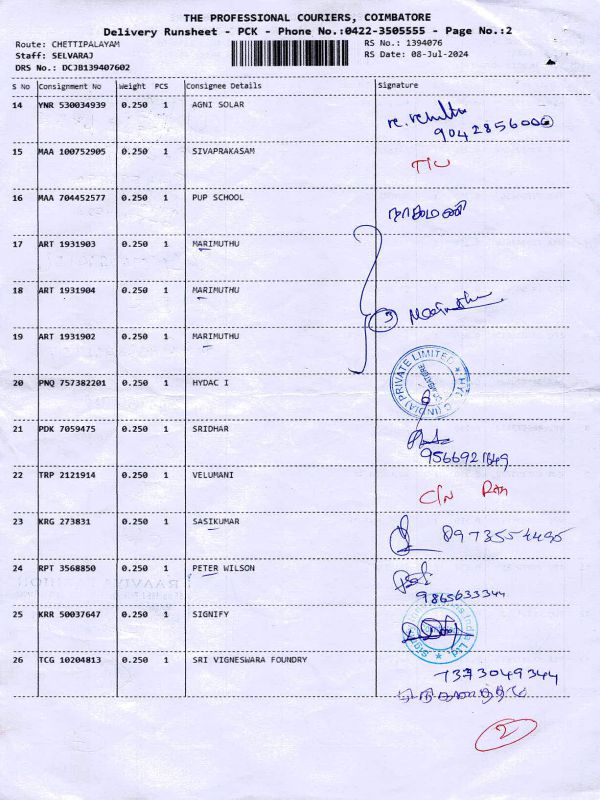 THE PROFESSIONAL COURIERS, COIMBATORE
Delivery Runsheet - PCK - Phone No.:0422-3505555 - Page No.:2
Route: CHETTIPALAYAM
RS No.: 1394076
Staff: SELVARAJ
RS Date: 08-Jul-2024
DRS No.: DCJB139407602
S No Consignment No Weight PCS Consignee Details Signature
14 YNR 530034939 0.250 1 AGNI SOLAR
9042856000
15 MAA 100752905 0.250 1 SIVAPRAKASAM
16 MAA 704452577 0.250 1 PUP SCHOOL
நாகமணி
17 ART 1931903 0.250 1 MARIMUTHU
18 ART 1931904 0.250 1 MARIMUTHU
3 Marimuthu
19 ART 1931902 0.250 1 MARIMUTHU
20 PNQ 757382201 0.250 1 HYDAC I
(INDIA) PRIVATE LIMITED
21 PDK 7059475 0.250 1 SRIDHAR
9566921649
22 TRP 2121914 0.250 1 VELUMANI
C/N
23 KRG 273831 0.250 1 SASIKUMAR
24 RPT 3568850 0.250 1 PETER WILSON
9865633344
25 KRR 50037647 0.250 1 SIGNIFY
26 TCG 10204813 0.250 1 SRI VIGNESWARA FOUNDRY
7373049344
2